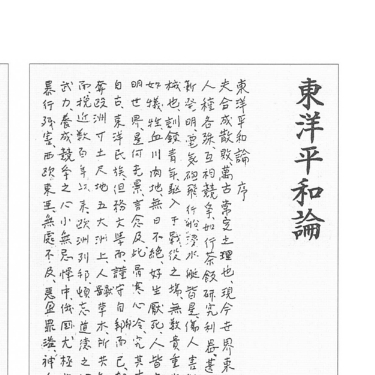 東洋平和論
東洋平和論 序
夫合成散敗萬古常定之理也、現今世界東
人種各殊互相競爭如行茶飯研究利器甚
新發明、電氣砲飛行船浸水艇、皆是傷人害
械也、訓鍊青年驅入于戰役之場無數貴重
如犧牲血川肉地、無日不絶、好生厭死、人皆
明世界是何光景言念及此骨寒心冷、究其
自古東洋民族但務文學而謹守自邦而已
奪欧洲寸土尺地五大洲上人獸草木所共
而挽近数百年以来、欧洲列邦、頓忘道德之
武力養成競爭之心小無忌憚、中俄国尤極
暴行殘害、西欧東亜、無處不及、惡盈罪溢、神